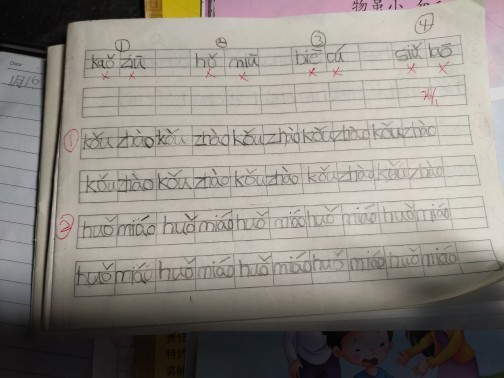 ① ② ③ ④
kaǒ ziū hǒ miū biè cá giǔ bō
① kǒu zhào kǒu zhào kǒu zhào kǒu zhào kǒu zhào
kǒu zhào kǒu zhào kǒu zhào kǒu zhào kǒu zhào
② huǒ miáo huǒ miáo huǒ miáo huǒ miáo huǒ miáo
huǒ miáo huǒ miáo huǒ miáo huǒ miáo huǒ miáo
Date